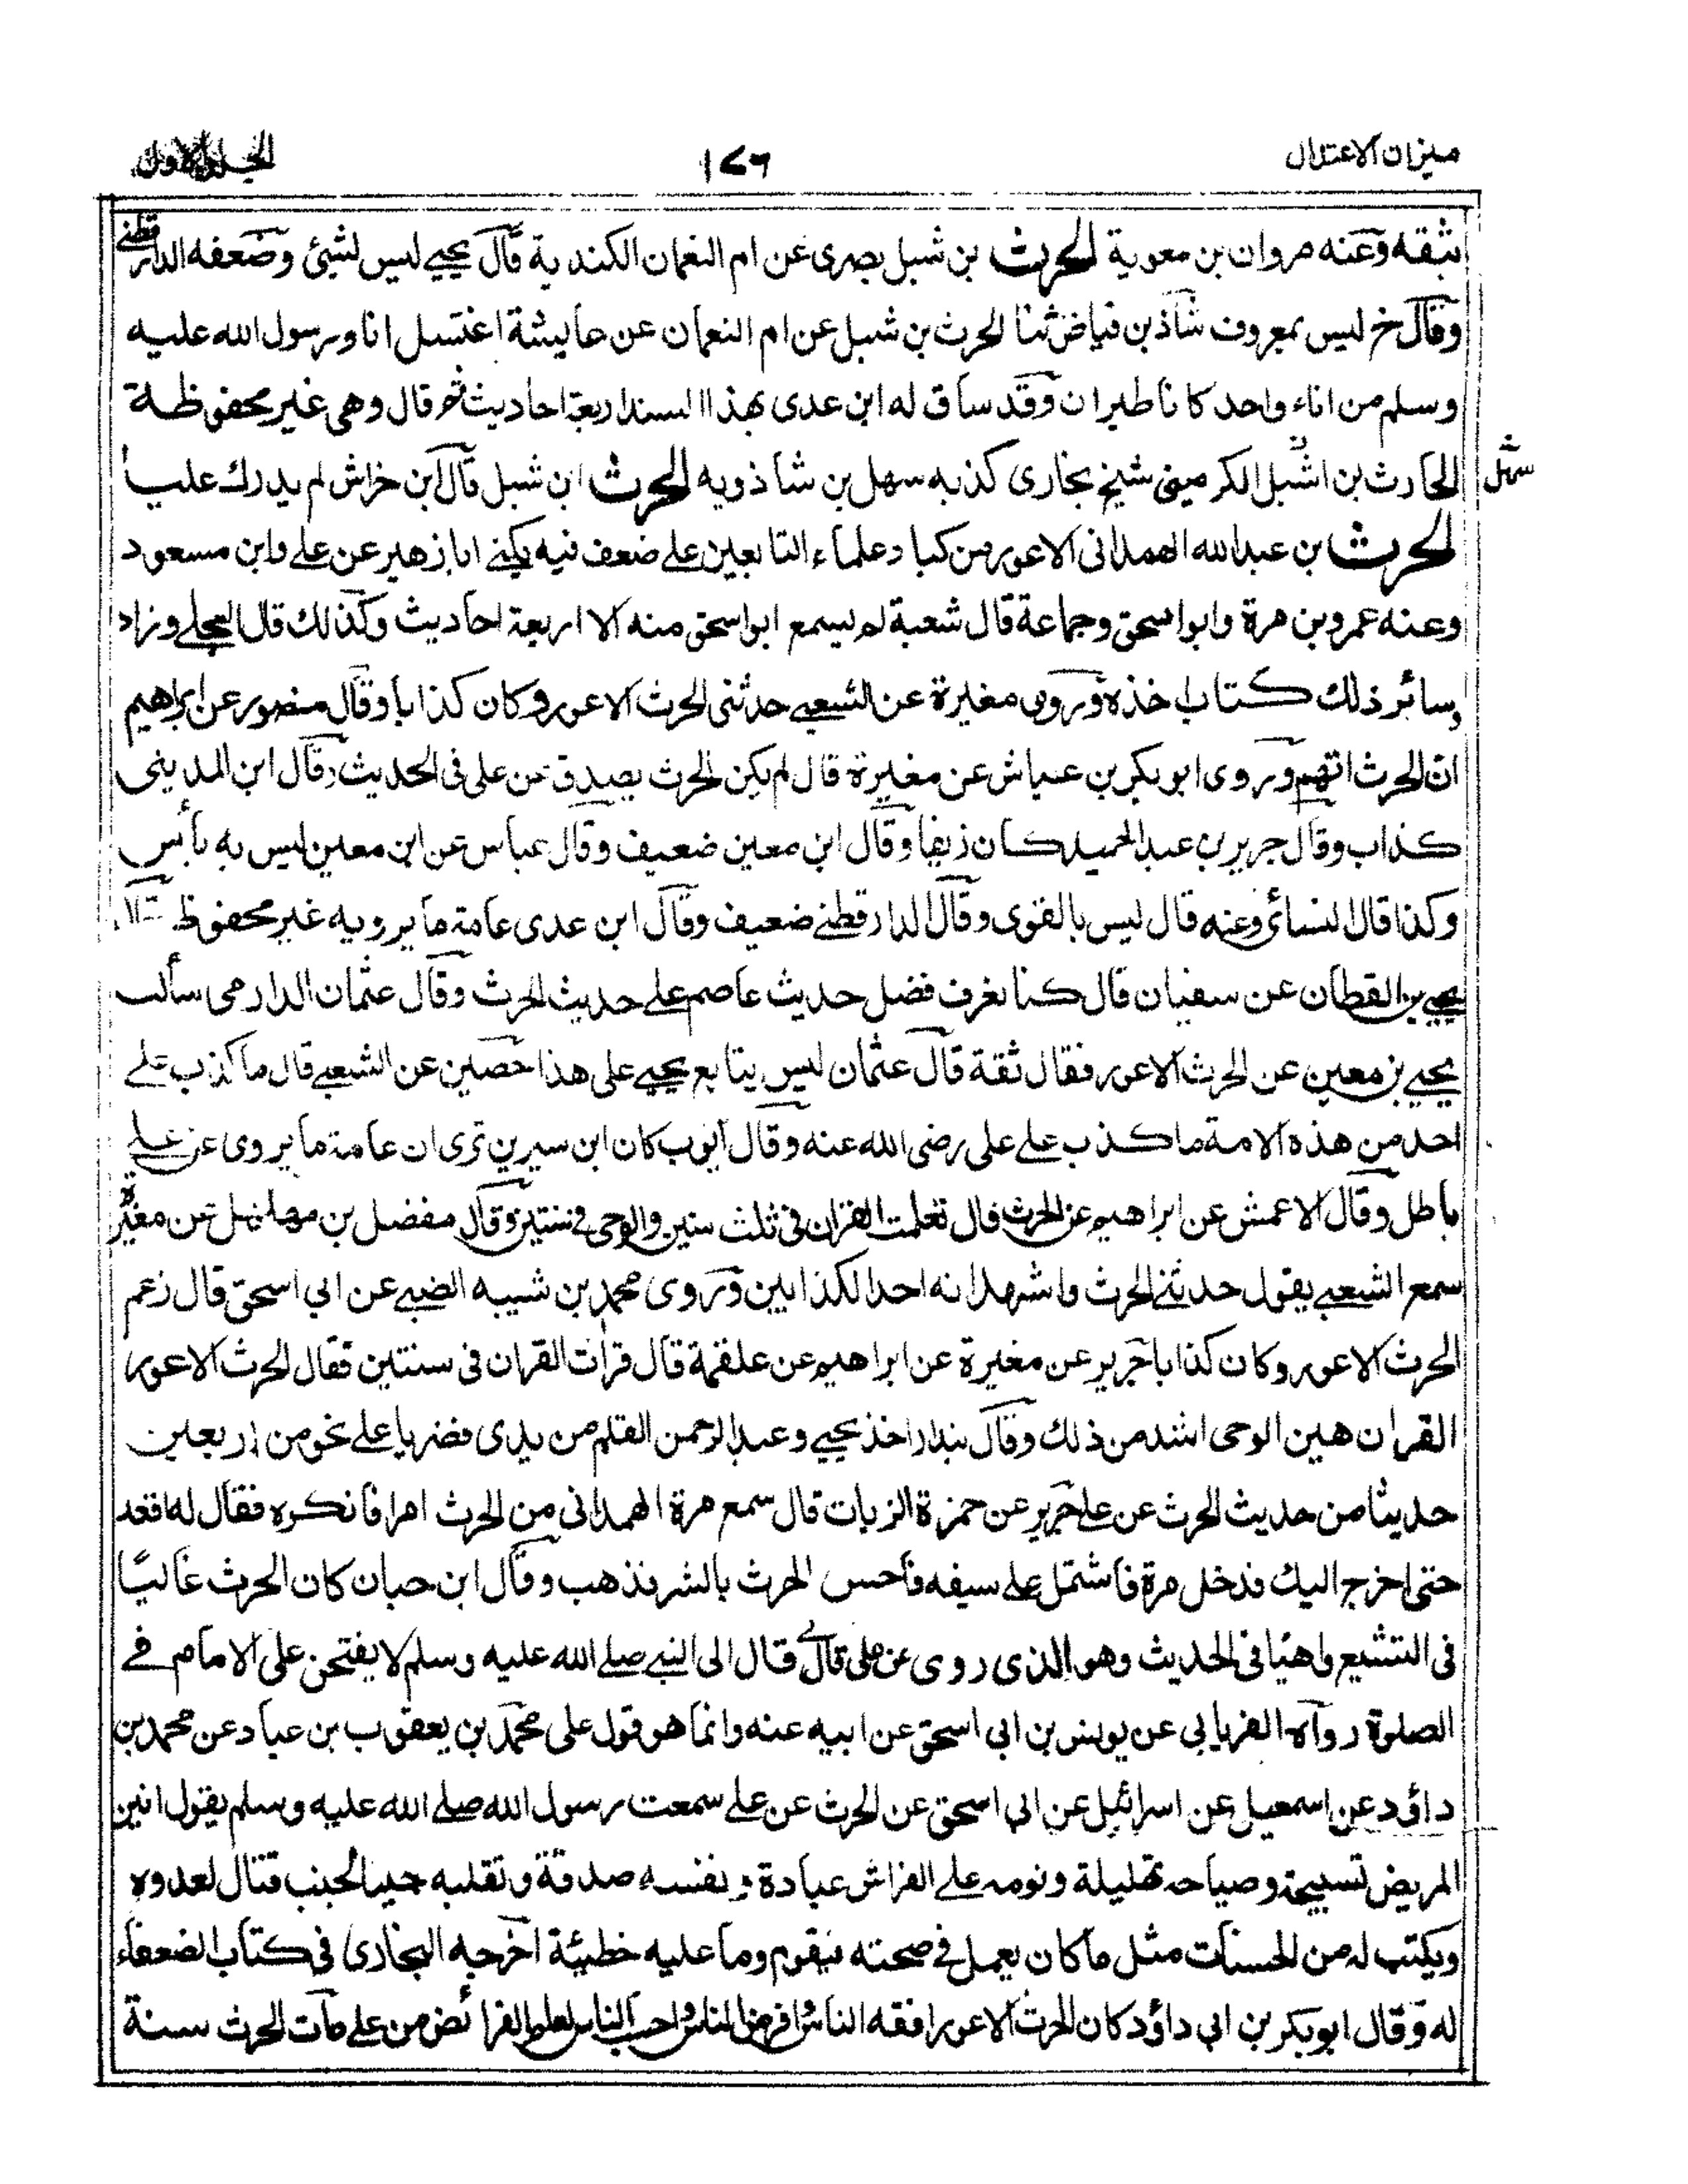 ميزان الاعتدال ١٧٦ الجلد الاول
بثقه وعنه مروان بن معوية الحرث بن شبل بصرى عن ام النعمان الكندية قال يحيى ليس لشئ وضعفه الدارقطنى
وقال خ ليس بمعروف شاذ بن فياض ثنا الحرث بن شبل عن ام النعمان عن عايشة اغتسل انا ورسول الله عليه
وسلم من اناء واحد كانا طيران وقد ساق له ابن عدى بهذا السند اربعة احاديث ثم قال وهى غير محفوظة
الحارث بن اشبل الكرمينى شيخ بخارى كذبه سهل بن شاذويه الحرث ابن شبل قال ابن خراش لم يدرك عليا
سهل
الحرث بن عبد الله الهمدانى الاعور من كبار علماء التابعين على ضعف فيه يكنى ابا زهير عن على وابن مسعود
وعنه عمرو بن مرة وابو اسحق وجماعة قال شعبة لم يسمع ابو اسحق منه الا اربعة احاديث وكذلك قال العجلى وزاد
وسائر ذلك كتاب اخذه وروى مغيرة عن الشعبى حدثنى الحرث الاعور وكان كذابا وقال منصور عن ابراهيم
ان الحرث اتهم وروى ابو بكر بن عياش عن مغيرة قال لم يكن الحرث يصدق عن على فى الحديث وقال ابن المدينى
كذاب وقال جرير بن عبد الحميد كان زيفا وقال ابن معين ضعيف وقال عباس عن ابن معين ليس به بأس
وكذا قال النسائى وعنه قال ليس بالقوى وقال الدارقطنى ضعيف وقال ابن عدى عامة ما يرويه غير محفوظ
يحيى بن القطان عن سفيان قال كنا نعرف فضل حديث عاصم على حديث الحرث وقال عثمان الدارمى سألت
يحيى بن معين عن الحرث الاعور فقال ثقة قال عثمان ليس يتابع يحيى على هذا حصين عن الشعبى قال ما كذب على
احد من هذه الامة ما كذب على على رضى الله عنه وقال ايوب كان ابن سيرين ترى ان عامة ما يروى عن على
باطل وقال الاعمش عن ابراهيم عن الحرث قال تعلمت القران فى ثلث سنين والوحى فى سنتين وقال مفضل بن مهلهل عن مغيرة
سمع الشعبى يقول حدثنى الحرث واشهد انه احد الكذابين وروى محمد بن شيبه الضبى عن ابى اسحق قال زعم
الحرث الاعور وكان كذابا جرير عن مغيرة عن ابراهيم عن علقمة قال قرات القران فى سنتين فقال الحرث الاعور
القران هين الوحى اشد من ذلك وقال بندار اخذ يحيى وعبد الرحمن القلم من يدى فضربا على نحو من اربعين
حديثا من حديث الحرث عن على جرير عن حمزة الزيات قال سمع مرة الهمدانى من الحرث امرا فانكره فقال له اقعد
حتى اخرج اليك فدخل مرة فاشتمل على سيفه فأحس الحرث بالشر فذهب وقال ابن حبان كان الحرث غاليا
فى التشيع واهيا فى الحديث وهو الذى روى عن على قال قال لى النبى صلى الله عليه وسلم لا يفتحن على الامام فى
الصلوة رواه الفريابى عن يونس بن ابى اسحق عن ابيه عنه وانما هو قول على محمد بن يعقوب بن عباد عن محمد بن
داؤد عن اسمعيل عن اسرائيل عن ابى اسحق عن الحرث عن على سمعت رسول الله صلى الله عليه وسلم يقول انين
المريض تسبيحة وصياحه تهليلة ونومه على الفراش عبادة ونفسه صدقة وتقلبه جنبا لجنب قتال لعدوه
ويكتب له من الحسنات مثل ما كان يعمل فى صحته فيقوم وما عليه خطيئة اخرجه البخارى فى كتاب الضعفاء
له وقال ابو بكر بن ابى داؤد كان الحرث الاعور افقه الناس وافرض الناس واحسب الناس تعلم الفرائض من على مات الحرث سنة